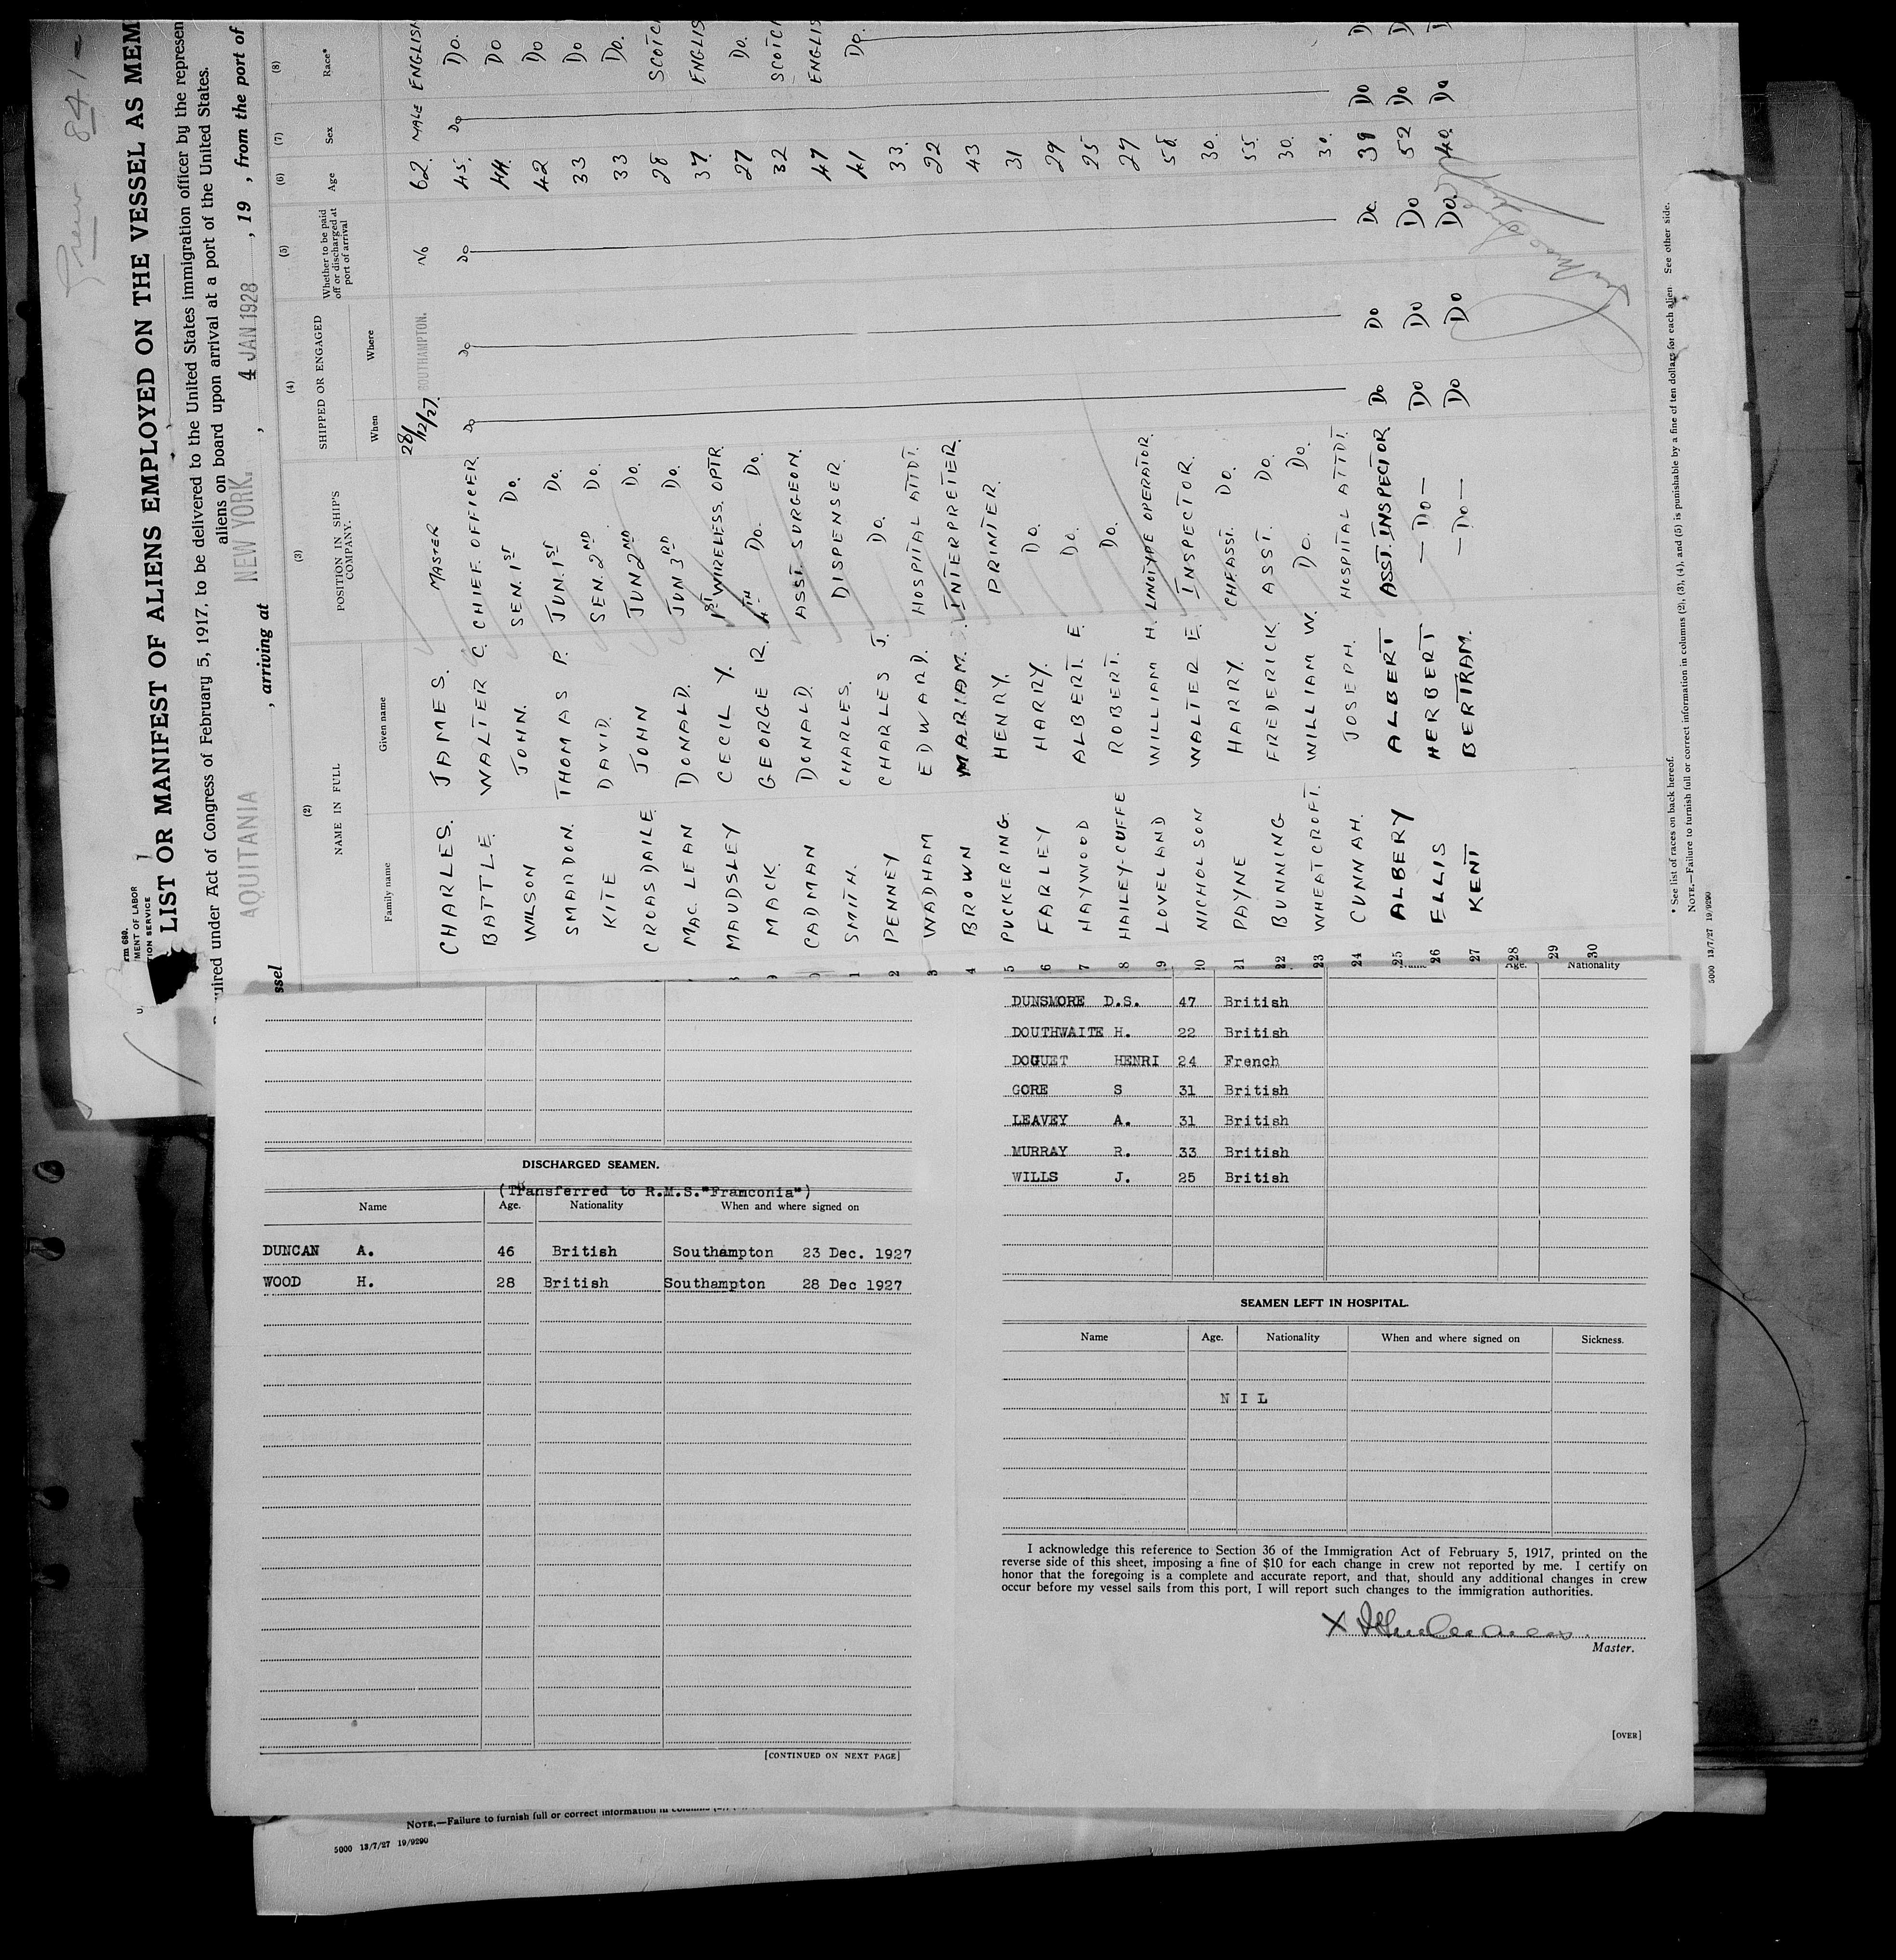 Crew 841
rm 680.
MENT OF LABOR
TION SERVICE
LIST OR MANIFEST OF ALIENS EMPLOYED ON THE VESSEL AS MEM
uired under Act of Congress of February 5, 1917, to be delivered to the United States immigration officer by the represen
aliens on board upon arrival at a port of the United States.
ssel AQUITANIA , arriving at NEW YORK. , 4 JAN 1928 , 19 , from the port of
(2) (3) (4) (5) (6) (7) (8)
NAME IN FULL POSITION IN SHIP'S COMPANY. SHIPPED OR ENGAGED Whether to be paid off or discharged at port of arrival Age Sex Race*
Family name Given name When Where
CHARLES. JAMES. MASTER 28/12/27. SOUTHAMPTON. No 62. MALE ENGLISH
BATTLE. WALTER C. CHIEF. OFFICER. Do Do Do 45. Do Do.
WILSON JOHN. SEN. 1ST Do. 44. Do
SMARDON. THOMAS P. JUN. 1ST Do. 42 Do
KITE DAVID. SEN. 2ND Do. 33 Do
CROASDAILE. JOHN JUN 2ND Do. 33 Do.
MAC. LEAN DONALD. JUN 3RD Do. 28 SCOTC
MAUDSLEY CECIL Y. 1ST WIRELESS. OPTR. 37. ENGLIS
9 MACK. GEORGE R. 4TH Do. Do. 27 Do.
CADMAN DONALD ASST. SURGEON. 32 SCOTC
1 SMITH. CHARLES. DISPENSER. 47 ENGLIS
2 PENNEY CHARLES J. Do. 41 Do.
3 WADHAM EDWARD. HOSPITAL ATTDT. 33.
4 BROWN MARIAM. INTERPRETER. 22
5 PUCKERING. HENRY. PRINTER. 43
6 FARLEY HARRY. Do. 31
7 HAYWOOD ALBERT. E. Do. 29
8 HAILEY-CUFFE ROBERT. Do. 25
9 LOVELAND WILLIAM H. LINOTYPE OPERATOR. 27
20 NICHOLSON WALTER E. INSPECTOR. 58.
21 PAYNE HARRY. CHFASST. Do. 30.
22 BUNNING FREDERICK. ASST. Do. 55.
23 WHEATCROFT. WILLIAM W. Do. Do. 30.
24 CUNNAH. JOSEPH. HOSPITAL ATTDT. 30.
25 ALBERY ALBERT ASST. INSPECTOR Do Do Do. 39 Do
26 ELLIS HERBERT — Do — Do Do Do 52 Do
27 KENT BERTRAM. — Do — Do Do Do. 40. Do
28
29
30
* See list of races on back hereof.
NOTE.—Failure to furnish full or correct information in columns (2), (3), (4), and (5) is punishable by a fine of ten dollars for each alien See other side.
5000 13/7/27 19/9290
DISCHARGED SEAMEN.
(Transferred to R.M.S."Franconia")
Name Age. Nationality When and where signed on
DUNCAN A. 46 British Southampton 23 Dec. 1927
WOOD H. 28 British Southampton 28 Dec 1927
[CONTINUED ON NEXT PAGE]
Name Age. Nationality
DUNSMORE D.S. 47 British
DOUTHWAITE H. 22 British
DOGUET HENRI 24 French
GORE S 31 British
LEAVEY A. 31 British
MURRAY R. 33 British
WILLS J. 25 British
SEAMEN LEFT IN HOSPITAL.
Name Age. Nationality When and where signed on Sickness.
N I L
I acknowledge this reference to Section 36 of the Immigration Act of February 5, 1917, printed on the
reverse side of this sheet, imposing a fine of $10 for each change in crew not reported by me. I certify on
honor that the foregoing is a complete and accurate report, and that, should any additional changes in crew
occur before my vessel sails from this port, I will report such changes to the immigration authorities.
X
Master.
[OVER]
NOTE.—Failure to furnish full or correct information in columns
5000 13/7/27 19/9290